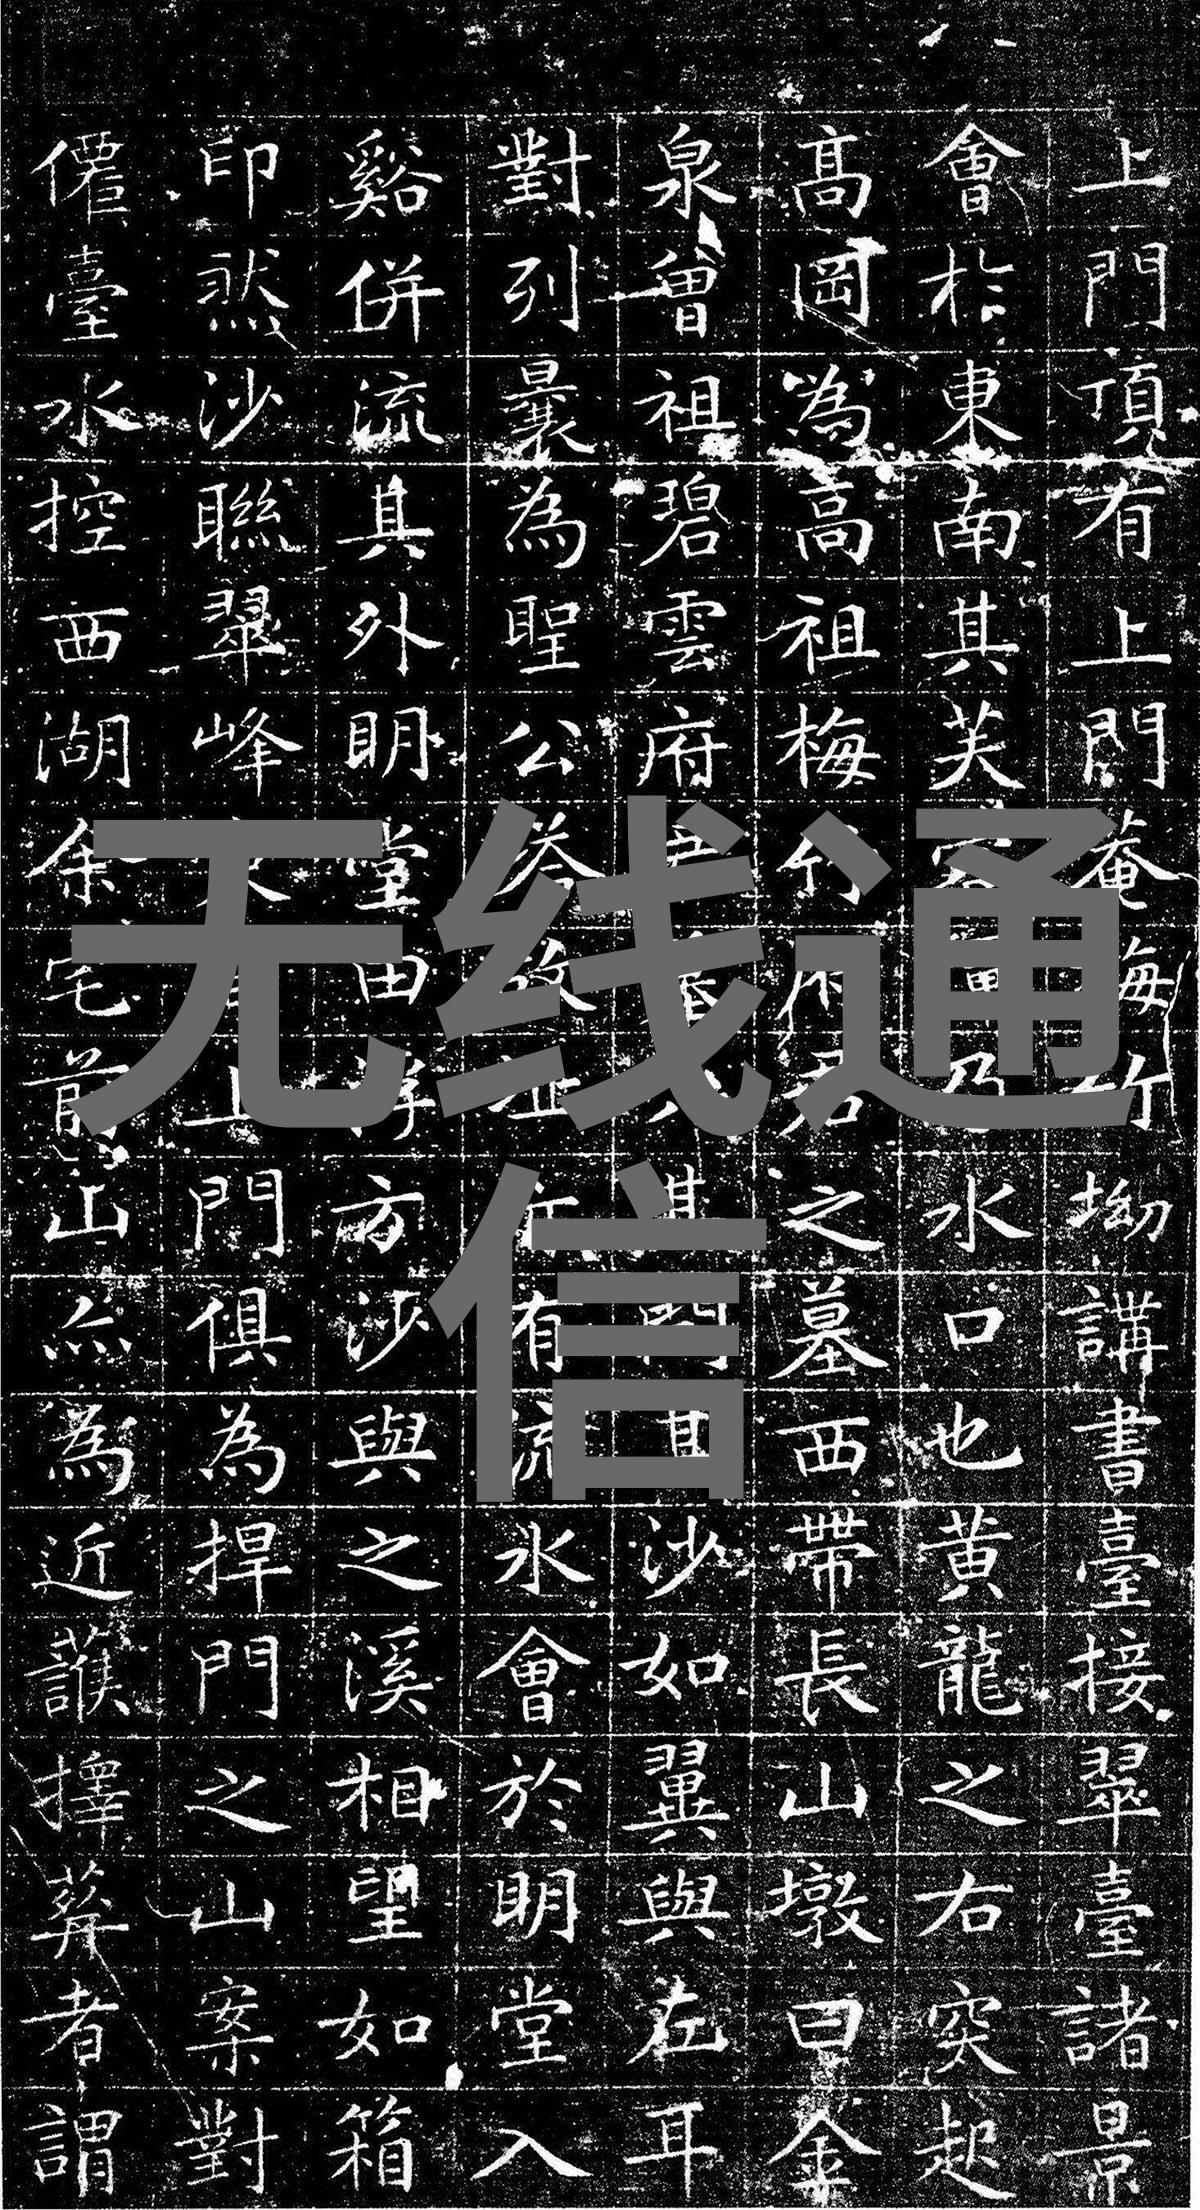 上門頂有上門菴梅竹坳講書臺接翠臺諸景
會於東南其芙蓉乃水口也黄龍之右突起
高岡為高祖梅竹府君之墓西帶長山墩曰金
泉曾祖碧雲府其門其沙如翼與左耳
對列曩為聖公塔故址有流水會於明堂入
谿併流其外明堂田浮方沙與之溪相望如箱
印然沙聯翠峰上門俱為捍門之山案對
僊臺水控西湖余宅前山亦為近讓擇葬者謂
无线通
信